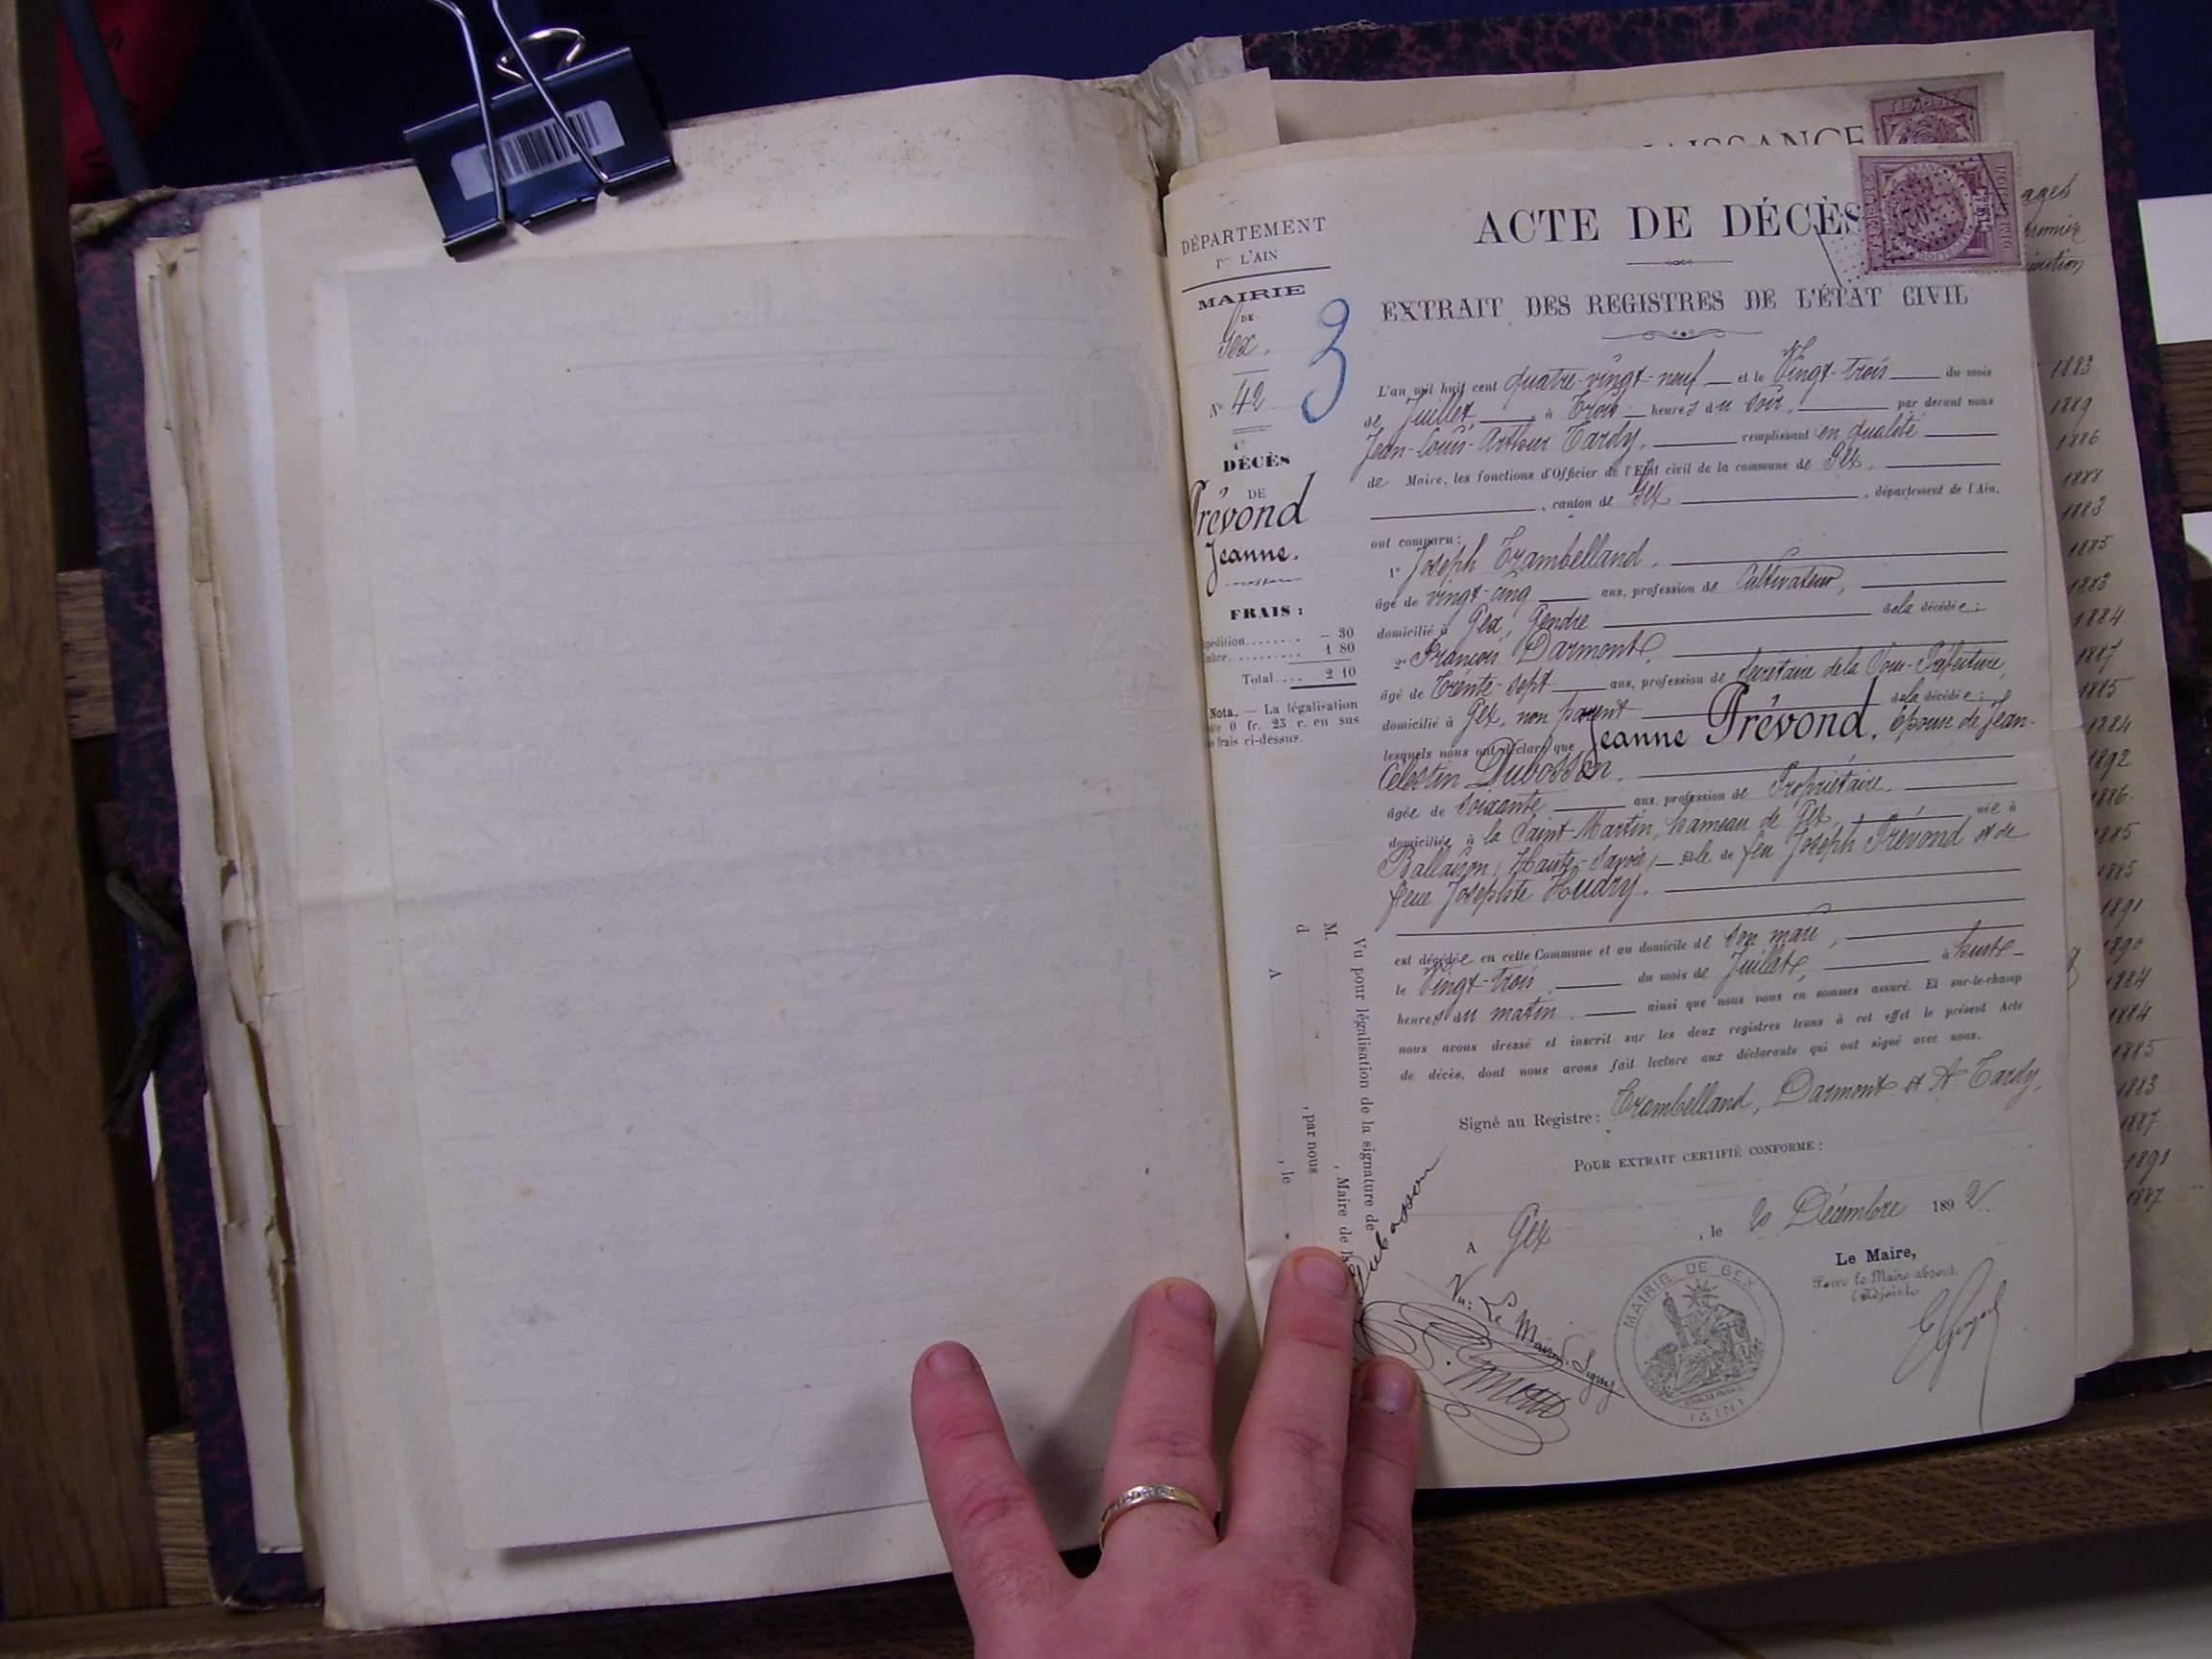 AISSANCE
ages
premier
DÉPARTEMENT
DE L'AIN
MAIRIE
DE
Gex.
N° 42
3
DÉCÈS
DE
Prévond
Jeanne.
FRAIS :
pédition........ — 30
mbre.......... 1 80
Total.... 2 10
Nota. — La légalisation
0 fr. 25 c. en sus
frais ci-dessus.
ACTE DE DÉCÈS
EXTRAIT DES REGISTRES DE L'ÉTAT CIVIL
L'an mil huit cent quatre-vingt-neuf et le Vingt-trois du mois
de Juillet, à Trois heures du soir, par devant nous
Jean-Louis-Arthur Tardy, remplissant en qualité
de Maire, les fonctions d'Officier de l'Etat civil de la commune de Gex,
, canton de Gex, département de l'Ain,
ont comparu :
1° Joseph Trambelland,
âgé de vingt-cinq ans, profession de Cultivateur,
domicilié à Gex, Gendre de la décédée ;
2° François Darmont,
âgé de Trente-sept ans, profession de Secrétaire de la Sous-Préfecture,
domicilié à Gex, non parent de la décédée ;
lesquels nous ont déclaré que Jeanne Prévond, épouse de Jean-
Célestin Dubosson,
âgée de soixante ans, profession de Propriétaire,
domiciliée à la Saint-Martin, hameau de Gex, née à
Ballaison, Haute-Savoie, fille de feu Joseph Prévond et de
feue Josephte Hudry.
est décédée en cette Commune et au domicile de son mari,
le Vingt-trois du mois de Juillet, à huit
heures du matin. ainsi que nous nous en sommes assuré. Et sur-le-champ
nous avons dressé et inscrit sur les deux registres tenus à cet effet le présent Acte
de décès, dont nous avons fait lecture aux déclarants qui ont signé avec nous.
Signé au Registre : Trambelland, Darmont et A Tardy,
POUR EXTRAIT CERTIFIÉ CONFORME :
A Gex, le 20 Décembre 1892
Le Maire,
Pour le Maire absent
l'Adjoint
MAIRIE DE GEX
(AIN)
Vu : Le Maire,
Dubosson
Vu pour légalisation de la signature de
M. , Maire de
d , par nous
A , le
1883
1889
1886
1888
1883
1885
1883
1884
1887
1885
1884
1892
1886
1885
1885
1891
1890
1884
1884
1885
1883
1887
1891
1887